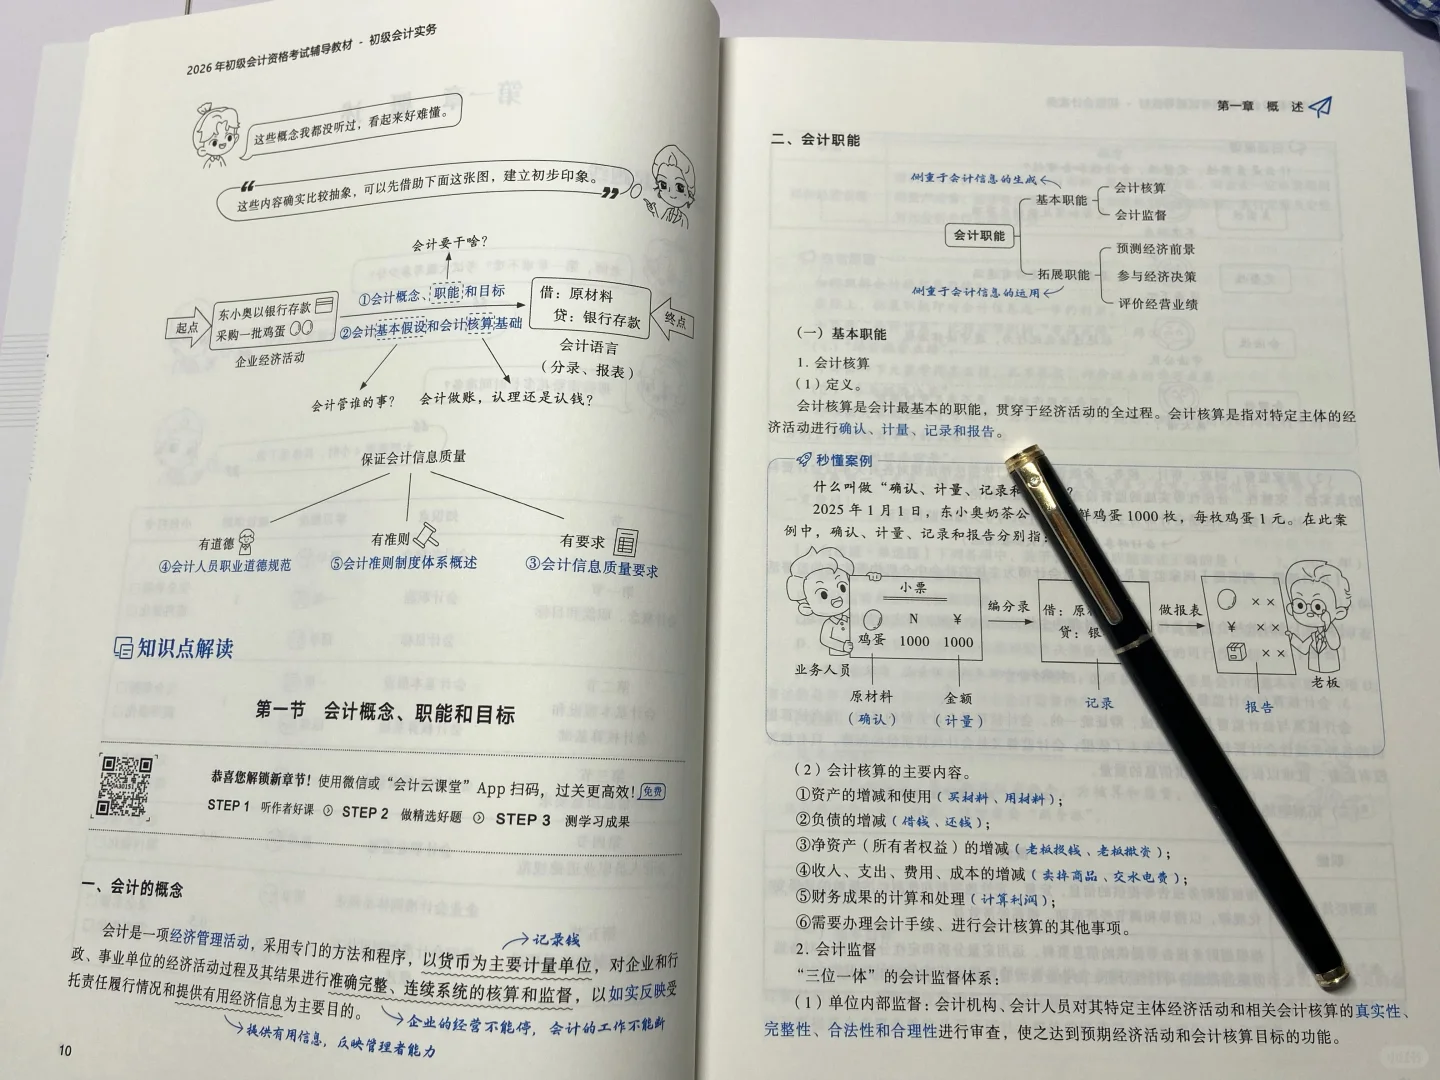 2026年初级会计资格考试辅导教材 - 初级会计实务
这些概念我都没听过，看起来好难懂。
“这些内容确实比较抽象，可以先借助下面这张图，建立初步印象。”
会计要干啥？
起点
东小奥以银行存款
采购一批鸡蛋
企业经济活动
①会计概念、职能和目标
②会计基本假设和会计核算基础
借：原材料
贷：银行存款
终点
会计语言
（分录、报表）
会计管谁的事？
会计做账，认理还是认钱？
保证会计信息质量
有道德
④会计人员职业道德规范
有准则
⑤会计准则制度体系概述
有要求
③会计信息质量要求
知识点解读
第一节 会计概念、职能和目标
恭喜您解锁新章节！使用微信或“会计云课堂”App扫码，过关更高效！免费
STEP 1 听作者好课 STEP 2 做精选好题 STEP 3 测学习成果
一、会计的概念
记录钱
会计是一项经济管理活动，采用专门的方法和程序，以货币为主要计量单位，对企业和行
政、事业单位的经济活动过程及其结果进行准确完整、连续系统的核算和监督，以如实反映受
托责任履行情况和提供有用经济信息为主要目的。
企业的经营不能停，会计的工作不能断
提供有用信息，反映管理者能力
10
第一章 概 述
二、会计职能
侧重于会计信息的生成
会计职能
基本职能
会计核算
会计监督
拓展职能
预测经济前景
参与经济决策
评价经营业绩
侧重于会计信息的运用
（一）基本职能
1. 会计核算
（1）定义。
会计核算是会计最基本的职能，贯穿于经济活动的全过程。会计核算是指对特定主体的经
济活动进行确认、计量、记录和报告。
秒懂案例
什么叫做“确认、计量、记录和？
2025年1月1日，东小奥奶茶公鲜鸡蛋1000枚，每枚鸡蛋1元。在此案
例中，确认、计量、记录和报告分别指：
小票
N ￥
鸡蛋 1000 1000
业务人员
原材料
（确认）
金额
（计量）
编分录
借：原
贷：银
记录
做报表
××
￥ ××
××
报告
老板
（2）会计核算的主要内容。
①资产的增减和使用（买材料、用材料）；
②负债的增减（借钱、还钱）；
③净资产（所有者权益）的增减（老板投钱、老板撤资）；
④收入、支出、费用、成本的增减（卖掉商品、交水电费）；
⑤财务成果的计算和处理（计算利润）；
⑥需要办理会计手续、进行会计核算的其他事项。
2. 会计监督
“三位一体”的会计监督体系：
（1）单位内部监督：会计机构、会计人员对其特定主体经济活动和相关会计核算的真实性、
完整性、合法性和合理性进行审查，使之达到预期经济活动和会计核算目标的功能。